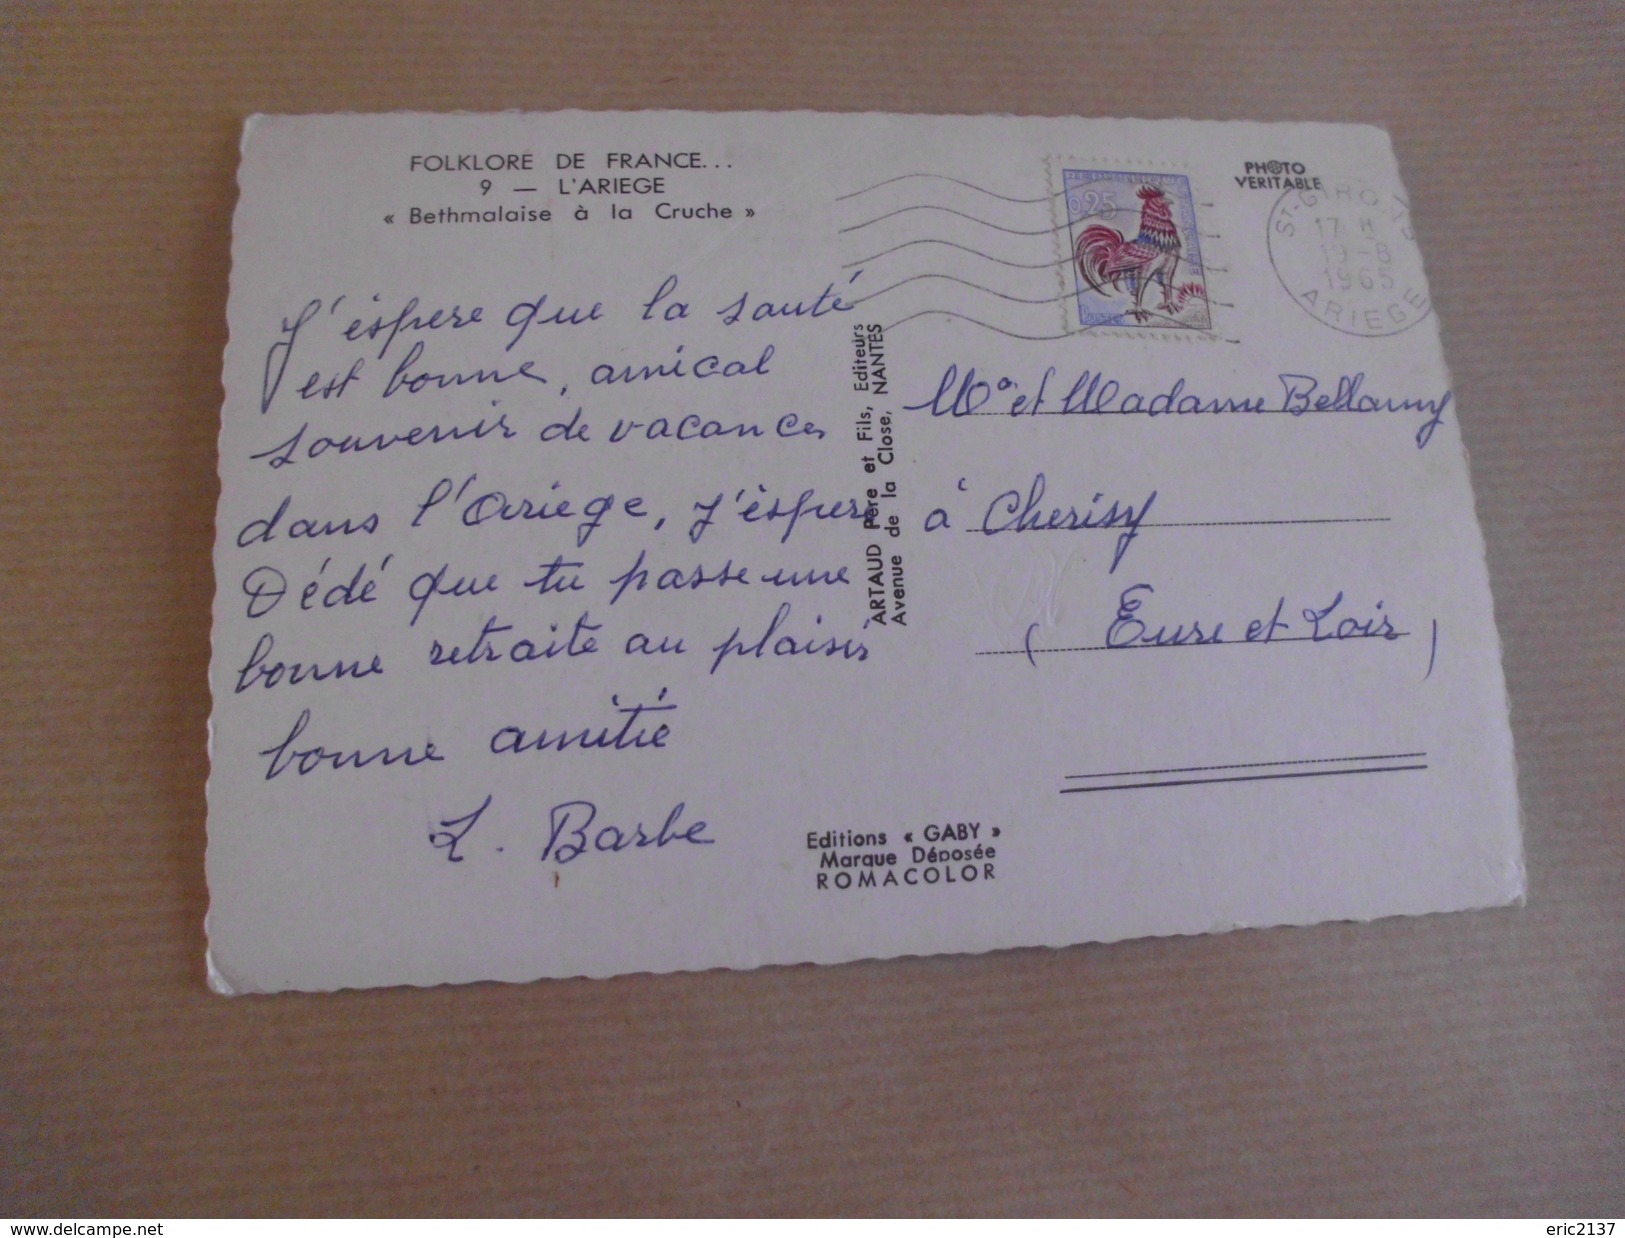 FOLKLORE DE FRANCE...
9 — L'ARIEGE
« Bethmalaise à la Cruche »
J'éspere que la santé
est bonne, amical
souvenir de vacances
dans l'Ariege, j'éspere
Dédé que tu passe une
bonne retraite au plaisir
bonne amitié
L. Barbe
ARTAUD Père et Fils, Editeurs
Avenue de la Close, NANTES
Editions « GABY »
Marque Déposée
ROMACOLOR
0,25
PHOTO
VERITABLE
ST-GIRONS
17 H
19-8
1965
ARIEGE
Mr et Madame Bellamy
à Cherisy
( Eure et Loir )
www.delcampe.net
eric2137